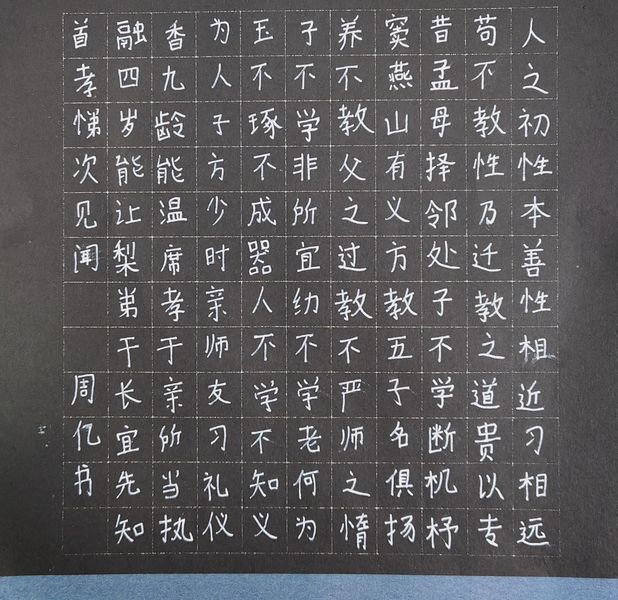 人之初性本善性相近习相远
苟不教性乃迁教之道贵以专
昔孟母择邻处子不学断机杼
窦燕山有义方教五子名俱扬
养不教父之过教不严师之惰
子不学非所宜幼不学老何为
玉不琢不成器人不学不知义
为人子方少时亲师友习礼仪
香九龄能温席孝于亲所当执
融四岁能让梨弟于长宜先知
首孝悌次见闻
周亿书